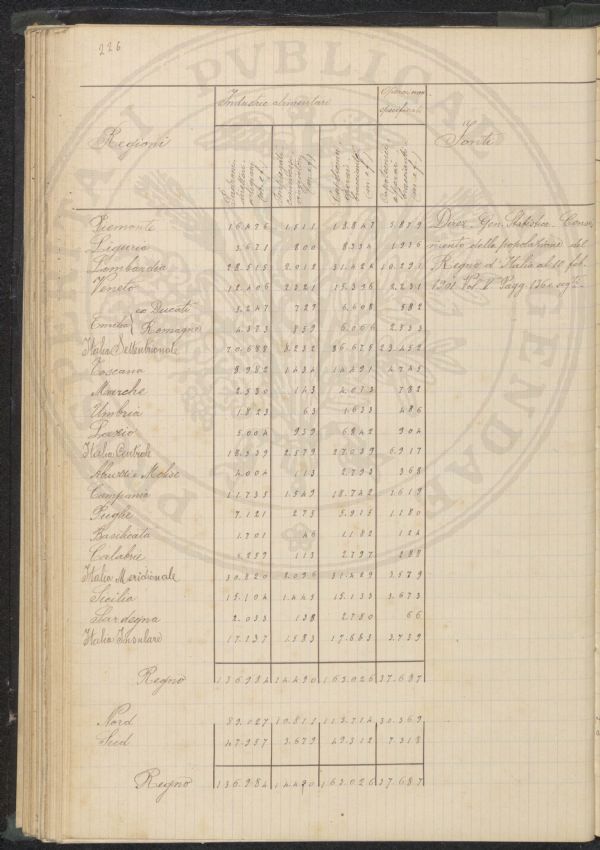 226
Industrie alimentari
Operai non
specificati
Regioni
Fonti
Piemonte 16.476 1.511 13.847 5.879 Direz. Gen. Statistica. Censi-
Liguria 3.671 800 8.334 1.916 mento della popolazione del
Lombardia 28.515 2.012 31.424 10.291 Regno d'Italia al 10 feb.
Veneto 12.406 2221 15.396 2.251 1901 Vol. V Pagg.
ex Ducati 5.247 729 6.608 582
Emilia Romagna 4.373 859 6.066 2.533
Italia Settentrionale 70.688 8.232 86.675 23.452
Toscana 8.982 1.434 14.491 4.745
Marche 2.530 143 4.073 782
Umbria 1.823 63 1.633 486
Lazio 5.004 939 6.842 904
Italia Centrale 18.339 2.579 27.039 6.917
Abruzzi e Molise 4.004 113 2.793 368
Campania 11.735 1.549 18.742 1.619
Puglie 7.121 275 5.915 1.180
Basilicata 1.701 46 1.182 124
Calabrie 6.259 113 2.797 288
Italia Meridionale 30.820 2.096 31.429 3.579
Sicilia 15.104 1.445 15.133 3.673
Sardegna 2.033 138 2.750 66
Italia Insulare 17.137 1.583 17.883 3.739
Regno 136.984 14.490 163.026 37.687
Nord 89.027 10.811 113.714 30.369
Sud 47.957 3.679 49.312 7.318
Regno 136.984 14.490 163.026 37.687